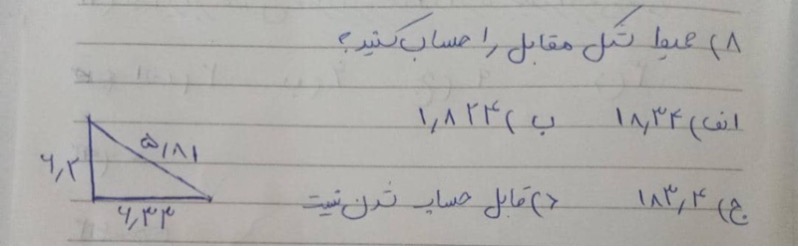 ۸) محیط شکل مقابل را حساب کنید؟
الف) ۱۸,۳۴ ب) ۱,۸۲۴
۵,۸۱
۶,۲
ج) ۱۸۳,۴ د) قابل حساب شدن نیست
۶,۳۳